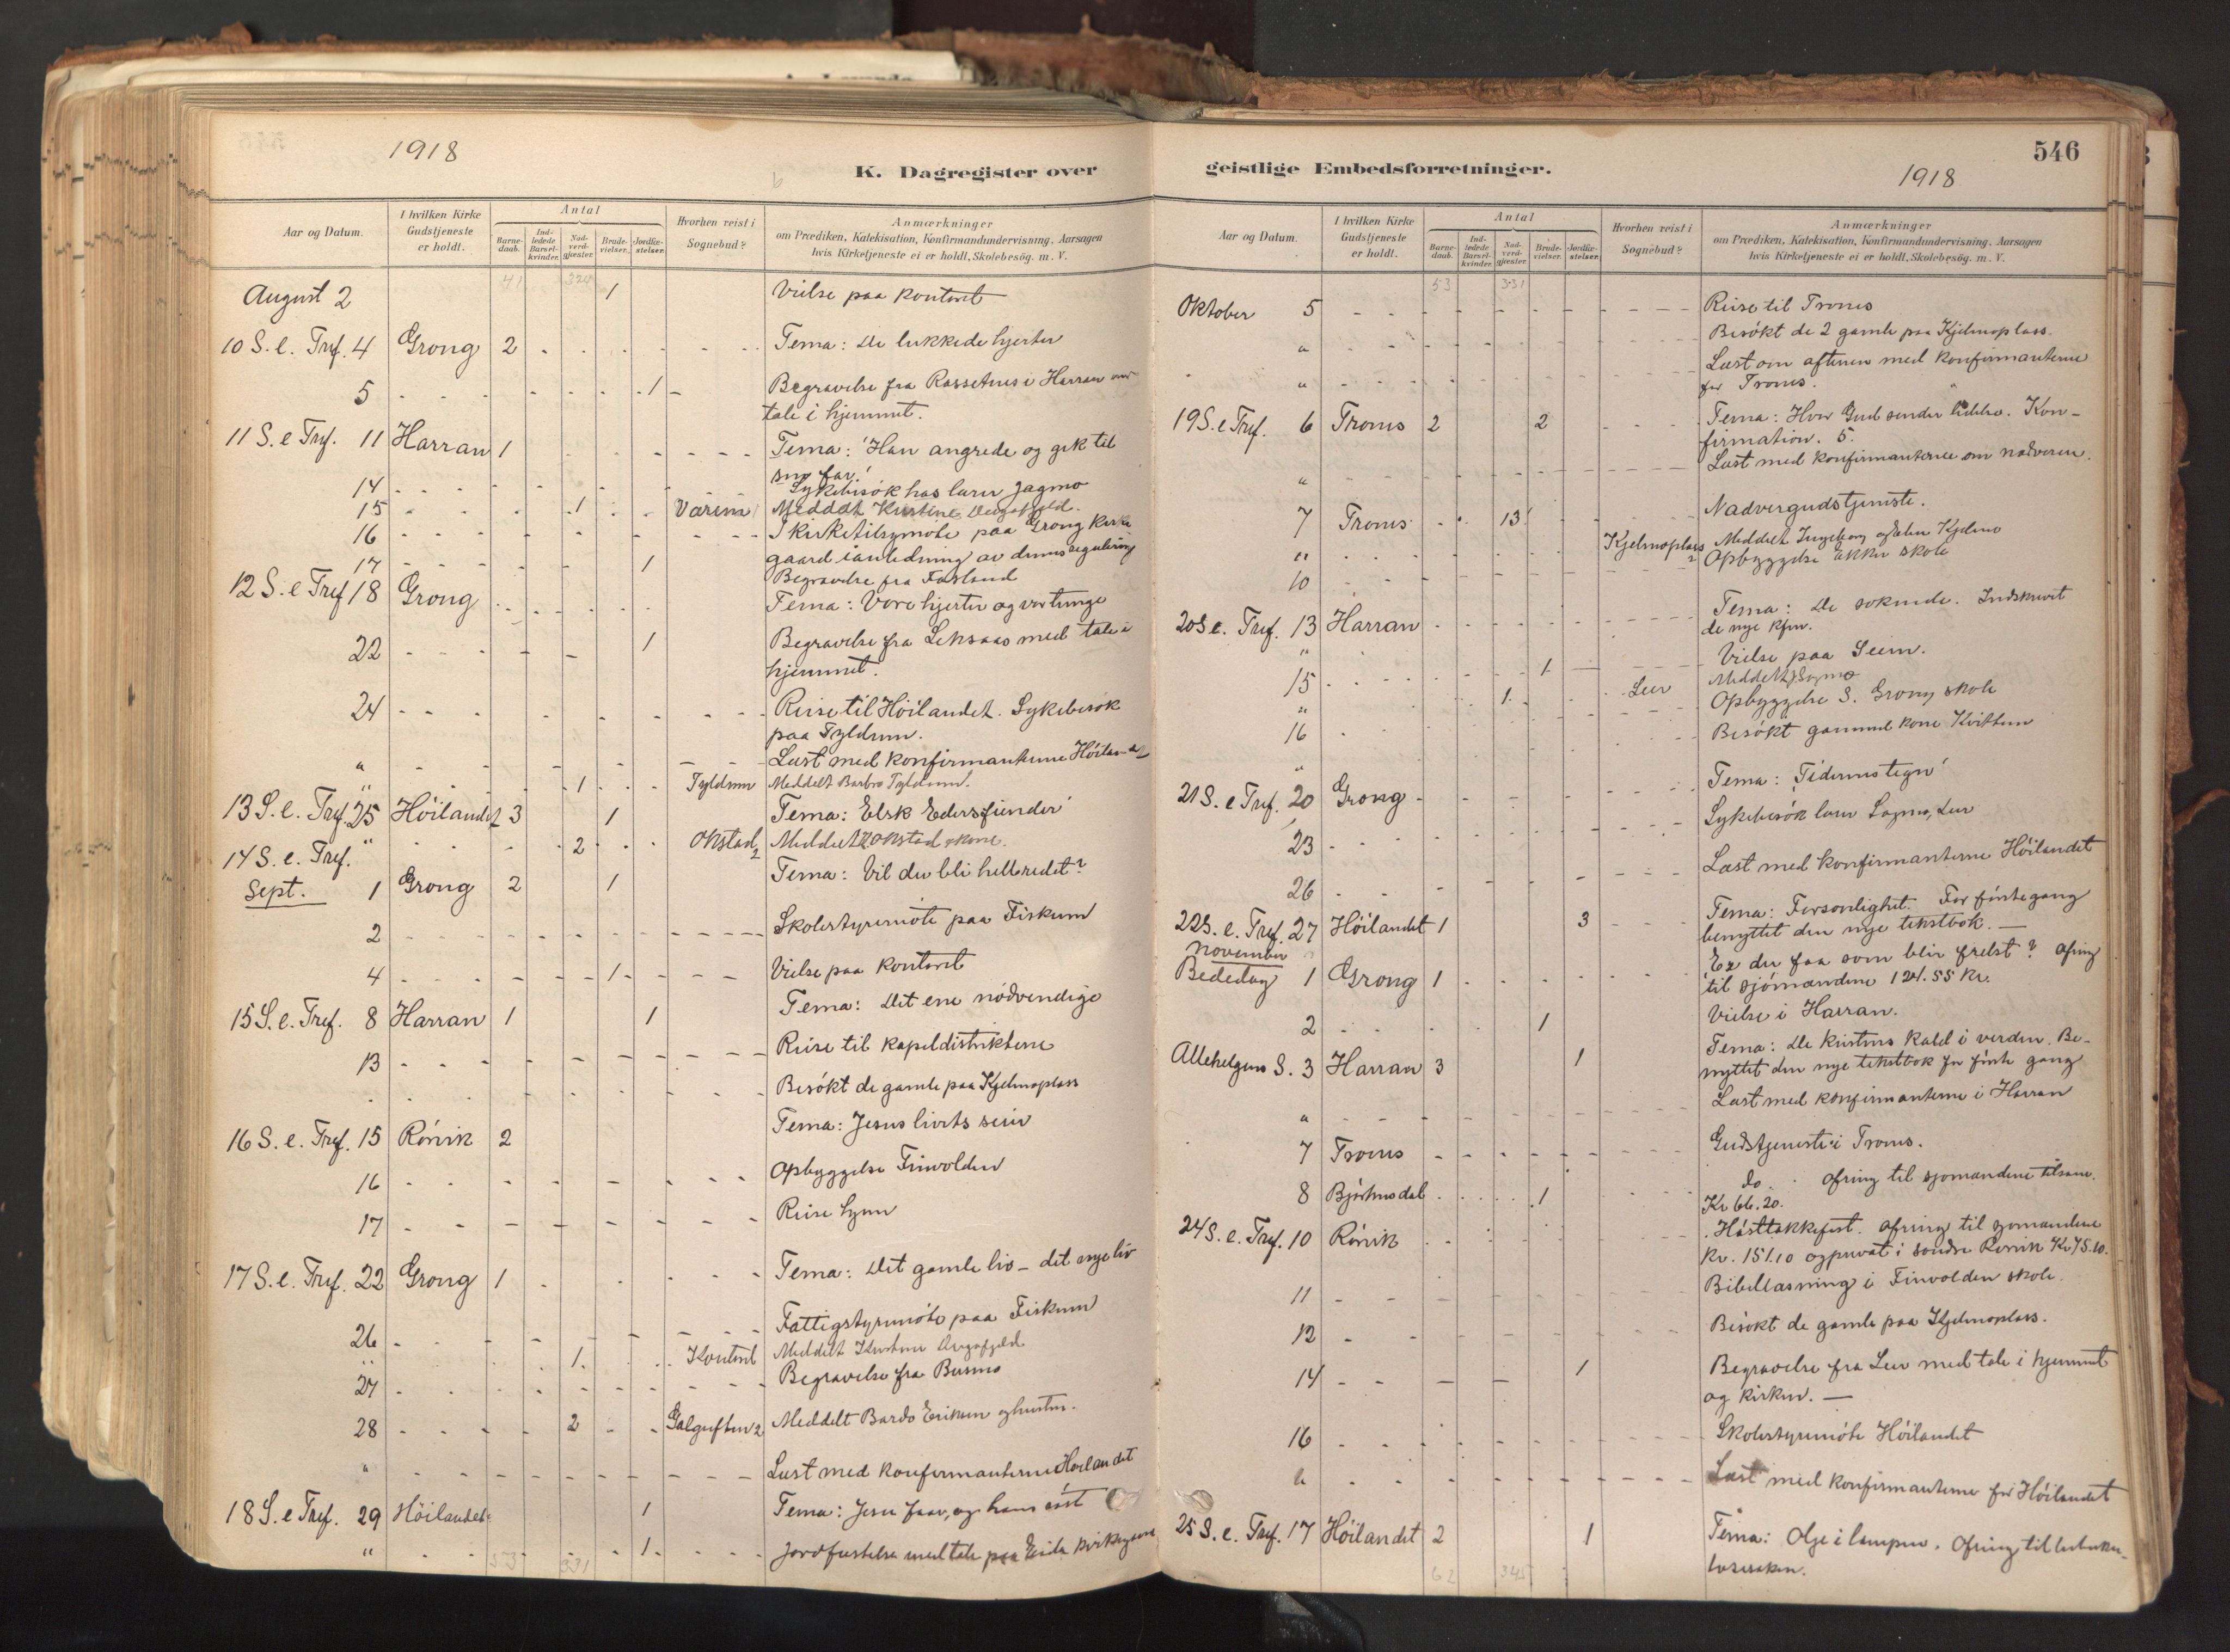 1918
K. Dagregister over
Aar og Datum.
I hvilken Kirke Gudstjeneste er holdt.
Antal
Barne-daab.
Ind-ledede Barsel-kvinder.
Nad-verd-gjæster.
Brude-vielser.
Jordfæ-stelser.
Hvorhen reist i Sognebud?
Anmærkninger
om Prædiken, Katekisation, Konfirmandundervisning, Aarsagen
hvis Kirketjeneste ei er holdt, Skolebesøg. m. V.
41 320
August 2 1 Vielse paa kontoret
10 S. e. Tref. 4 Grong 2 Tema: De lukkede hjerter
5 1 Begravelse fra Rossetnes i Harran med
tale i hjemmet.
11 S. e Tref. 11 Harran 1 Tema: 'Han angrede og gik til
sin far.'
14 Sykebesök hos lærer Jagmo
15 1 Meddelt Kristine
16 I kirketilsynmöte paa Grong kirke
gaard i anledning av dens regulering
17 1 Begravelse fra Fosland
12 S. e Tref 18 Grong Tema: Vore hjerter og vor tunge
22 1 Begravelse fra Leksaas med tale i
hjemmet.
24 Reise til Höilandet. Sykebesök
paa Tyldum.
" Læst med konfirmanterne Höiland
" 1 Tyldum Meddelt Barbro Tyldum.
13 S. e. Tref. 25 Höilandet 3 1 Tema: Elsk Eders fiender
" 2 Okstad 2 Meddelt Okstad & kone.
14 S. e. Tref.
Sept. 1 Grong 2 1 Tema: Vil du bli helbredet?
2 Skolestyremöte paa Fiskum
4 1 Vielse paa kontoret
15 S. e. Tref. 8 Harran 1 1 Tema: Det ene nödvendige
13 Reise til kapeldistrikterne
Besökt de gamle paa Kjelmoplass
16 S. e. Tref. 15 Rörvik 2 Tema: Jesus livets seier
16 Opbyggelse Finvolden
17 Reise hjem
17 S. e. Tref. 22 Grong 1 Tema: Det gamle liv – det nye liv
26 Fattigstyremöte paa Fiskum
" 1 Kontoret Meddelt Kristine
27 Begravelse fra Busmo
28 2 Galguften 2 Meddelt Bardo Eriksen og hustru.
" Læst med konfirmanterne Höilandet
18 S. e Tref. 29 Höilandet 1 Tema: Jesu og hans
" 1 Jordfæstelse med tale paa Eide kirkegaard
53 331
546
geistlige Embedsforretninger.
1918
Aar og Datum.
I hvilken Kirke Gudstjeneste er holdt.
Antal
Barne-daab.
Ind-ledede Barsel-kvinder.
Nad-verd-gjæster.
Brude-vielser.
Jordfæ-stelser.
Hvorhen reist i Sognebud?
Anmærkninger
om Prædiken, Katekisation, Konfirmandundervisning, Aarsagen
hvis Kirketjeneste ei er holdt, Skolebesøg. m. V.
53 331
Oktober 5 Reise til Tromes
" Besökt de 2 gamle paa Kjelmoplass.
" Læst om aftenen med konfirmanterne
for Tromes.
19 S. e Tref. 6 Tromes 2 2 Tema: Hvor Gud sender lidelse. Kon-
firmation. 5.
" Læst med konfirmanterne om nadveren.
7 Tromes 13 Nadvergudstjeneste.
" Kjelmoplass 2 Meddelt Ingeborg og Kjelmo
10 Opbyggelse Ekker skole
20 S e. Tref. 13 Harran Tema: De sökende. Indskrevet
de nye kfm.
" 1 Vielse paa Seem.
15 1 Leer Meddelt
" Opbyggelse S. Grong skole
16 Besökt gammel kone Kvittum
21 S. e Tref. 20 Grong Tema: 'Tidernes tegn'
23 Sykebesök lærer Sagmo, Leer
26 Læst med konfirmanterne Höilandet
22 S. e. Tref. 27 Höilandet 1 3 Tema: Forsonlighet. For förste gang
benyttet den nye tekstbok. —
November
Bededag 1 Grong 1 Er der faa som blir frelst? Ofring
til sjömændene 124.55 Kr.
2 1 Vielse i Harran.
Allehelgens S. 3 Harran 3 1 Tema: De kristnes kald i verden. Be-
nyttet den nye tekstbok for förste gang
" Læst med konfirmanterne i Harran
7 Tromes Gudstjeneste i Tromes.
8 Björhusdal 1 do. Ofring til sjömændene tilsam.
Kr 66.20.
24 S. e. Tref. 10 Rörvik Hösttakkefest. Ofring til sjömændene
Kr. 151.10 og privat i söndre Rörvik Kr 75.10.
11 Bibellæsning i Finvolden skole.
12 Besökt de gamle paa Kjelmoplass.
14 1 Begravelse fra Leer med tale i hjemmet
og kirken. —
16 Skolestyremöte Höilandet
" Læst med konfirmanterne for Höilandet
25 S. e. Tref. 17 Höilandet 2 1 Tema: Olje i lampen. Ofring til tuberku-
losesaken.
62 345